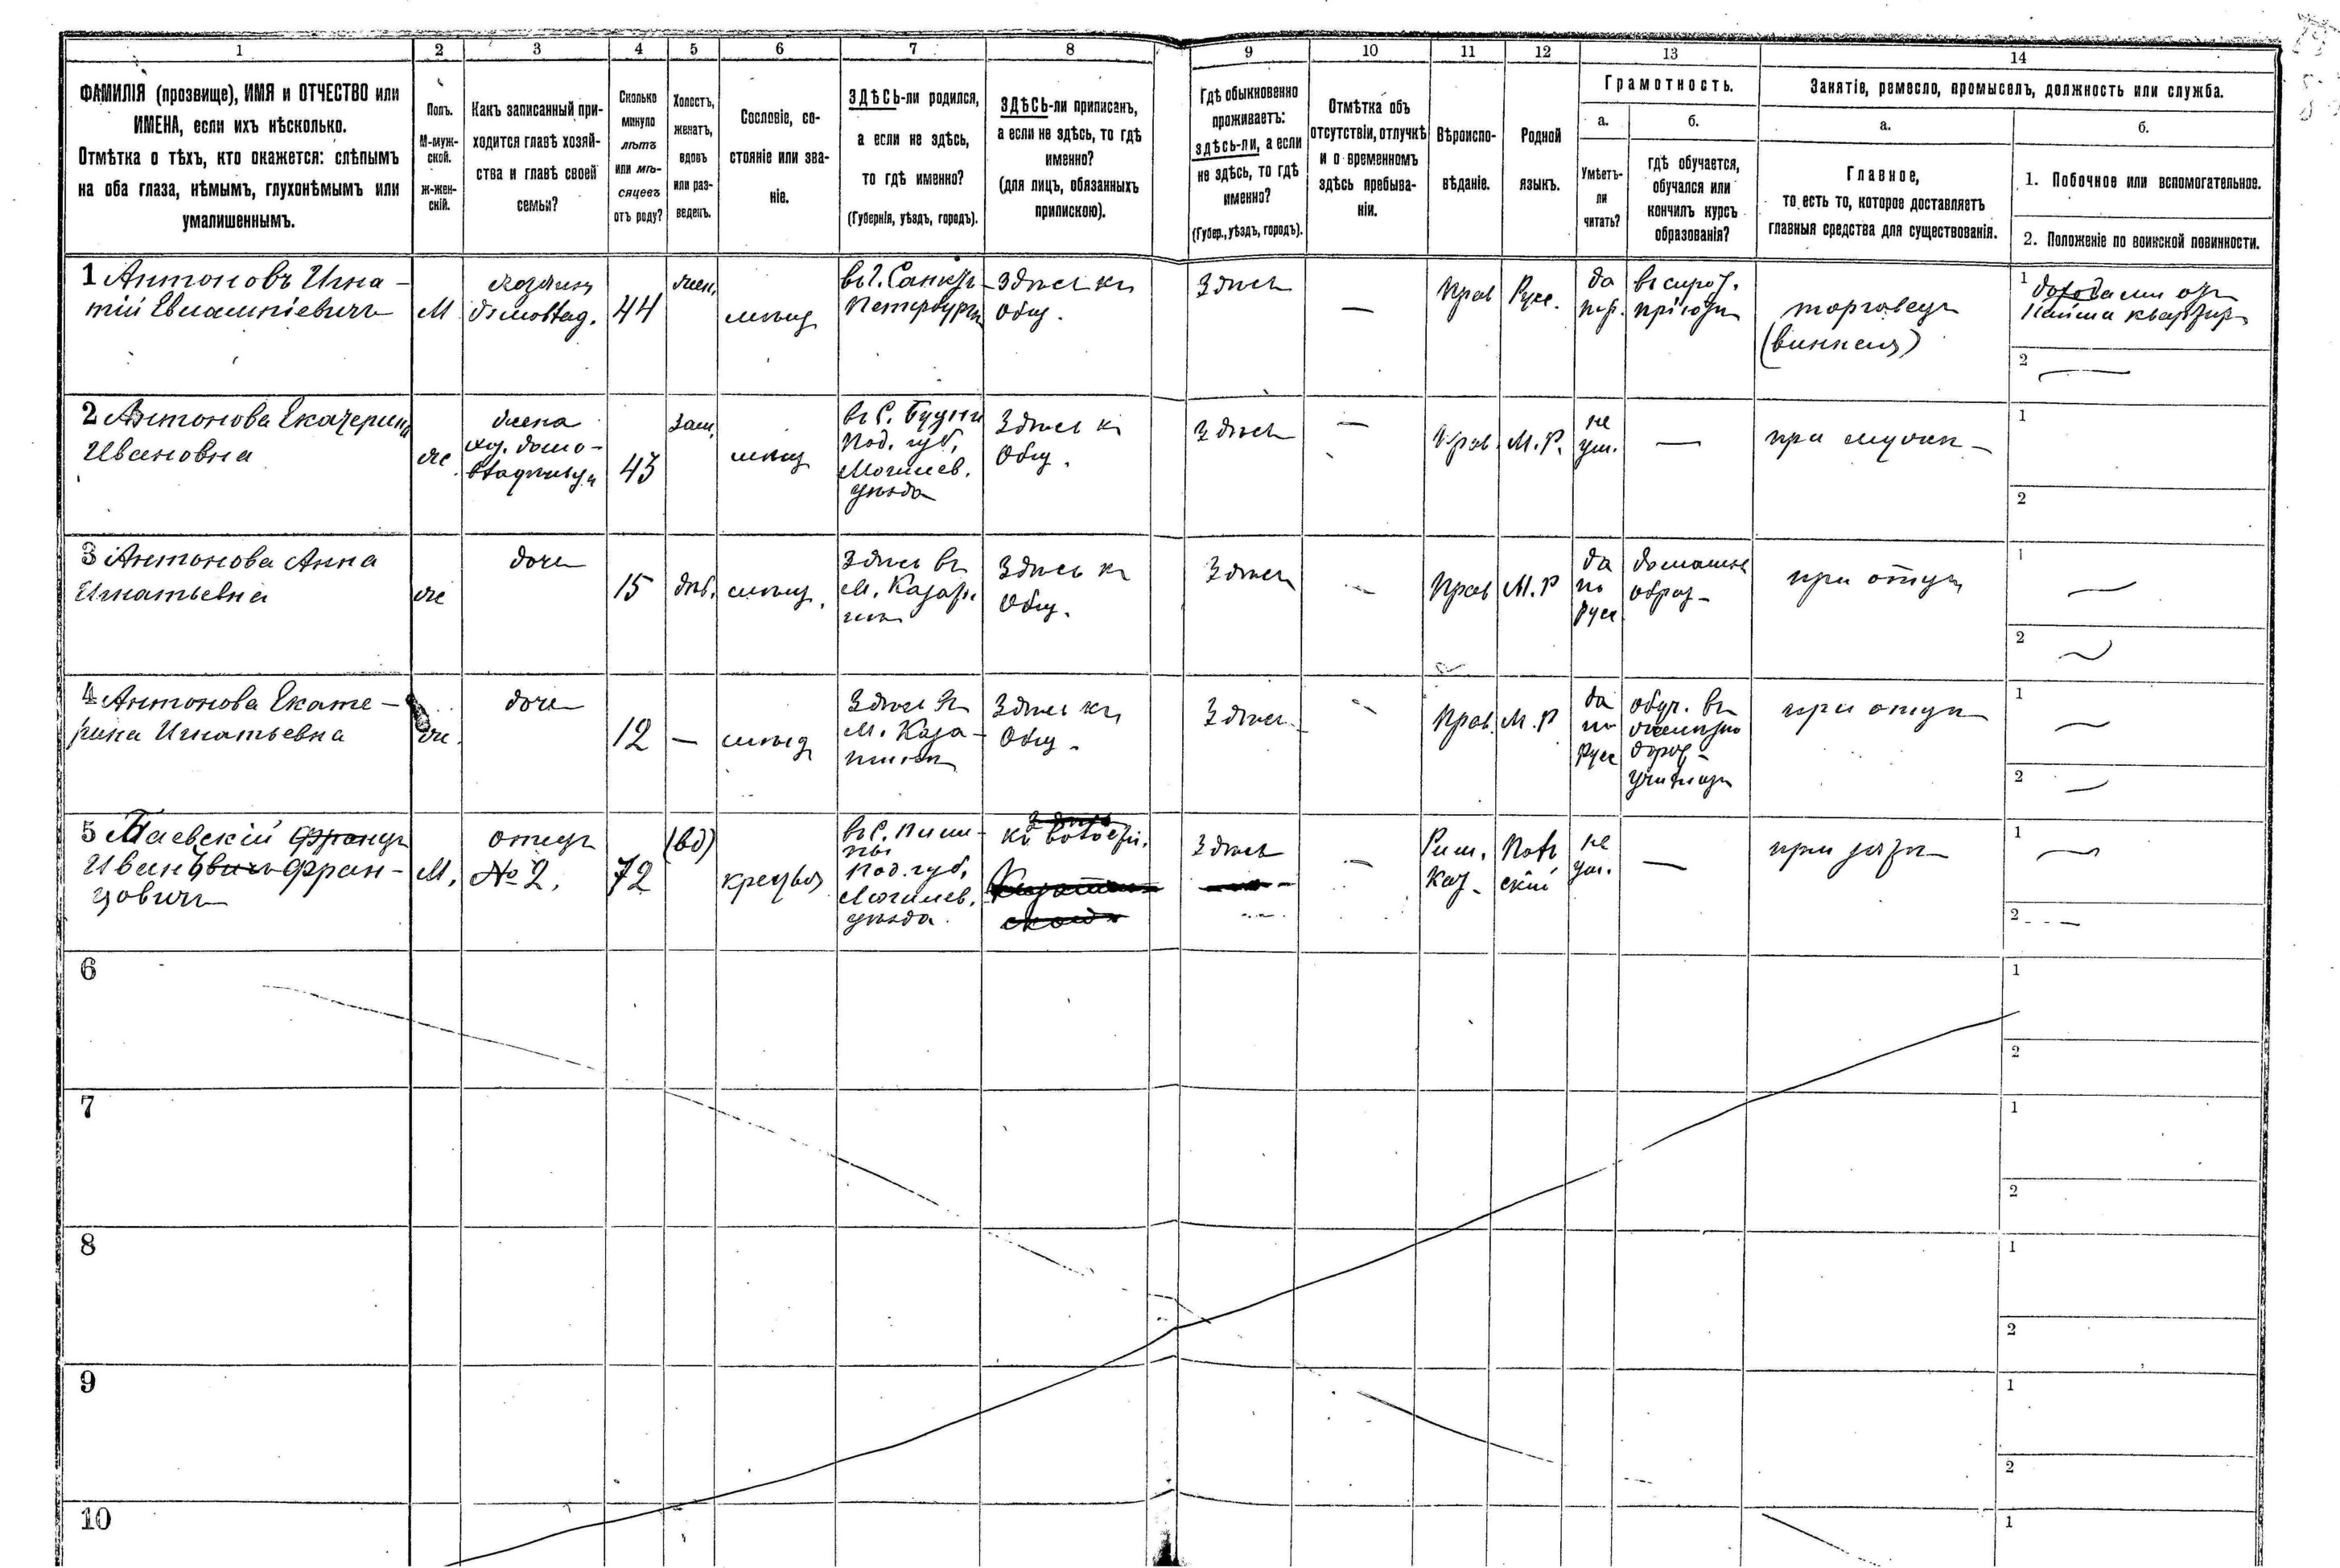 1 2 3 4 5 6 7 8 9 10 11 12 13 14
ФАМИЛІЯ (прозвище), ИМЯ и ОТЧЕСТВО или
ИМЕНА, если ихъ нѣсколько.
Отмѣтка о тѣхъ, кто окажется: слѣпымъ
на оба глаза, нѣмымъ, глухонѣмымъ или
умалишеннымъ.
Полъ.
М-муж-
ской.
ж-жен-
скій.
Какъ записанный при-
ходится главѣ хозяй-
ства и главѣ своей
семьи?
Сколько
минуло
лѣтъ
или мѣ-
сяцевъ
отъ роду?
Холостъ,
женатъ,
вдовъ
или раз-
веденъ.
Сословіе, со-
стояніе или зва-
ніе.
ЗДѢСЬ-ли родился,
а если не здѣсь,
то гдѣ именно?
(Губернія, уѣздъ, городъ).
ЗДѢСЬ-ли приписанъ,
а если не здѣсь, то гдѣ
именно?
(для лицъ, обязанныхъ
припискою).
Гдѣ обыкновенно
проживаетъ:
здѣсь-ли, а если
не здѣсь, то гдѣ
именно?
(Губер., уѣздъ, городъ).
Отмѣтка объ
отсутствіи, отлучкѣ
и о временномъ
здѣсь пребыва-
ніи.
Вѣроиспо-
вѣданіе.
Родной
языкъ.
Грамотность.
а.
Умѣетъ-
ли
читать?
б.
гдѣ обучается,
обучался или
кончилъ курсъ
образованія?
Занятіе, ремесло, промыселъ, должность или служба.
а.
Главное,
то есть то, которое доставляетъ
главныя средства для существованія.
б.
1. Побочное или вспомогательное.
2. Положеніе по воинской повинности.
1 Антоновъ Игна-
тій Евлампіевичъ
М
хозяинъ
домовлад.
44
жен.
мѣщ
въ г. Санктъ-
Петербургѣ
Здѣсь къ
Общ.
Здѣсь
—
Прав
Русс.
да
въ сирот.
пріютѣ
торговецъ
1
доходами отъ
найма квартиръ
2
2 Антонова Екатерина
Ивановна
же
жена
хоз. домо-
владѣльца
43
зам.
мѣщ
въ с.
Под. губ.
Могилев.
уѣзда
Здѣсь къ
Общ.
Здѣсь
—
Прав.
М. Р.
не
ум.
—
при мужѣ
1
2
3 Антонова Анна
Игнатьевна
же
дочь
15
дѣв.
мѣщ.
Здѣсь въ
М.
Здѣсь къ
Общ.
Здѣсь
—
Прав
М. Р
да
по
Русс
домашн
образ-
при отцѣ
1
2
4 Антонова Екате-
рина Игнатьевна
же.
дочь
12
—
мѣщ
Здѣсь въ
М.
Здѣсь къ
Общ.
Здѣсь
Прав.
М. Р
да
по
Русс
обуч. въ
училищѣ
при отцѣ
1
2
5 Маевскій Францъ
Иванъ Фран-
цовичъ
М.
отецъ
№ 2.
72
(вд)
въ с.
Под. губ.
Могилев.
уѣзда
Здѣсь
Здѣсь
—
Рим.
Каѳ.
Поль
скій
не
ум.
—
при зятѣ
1
2
6
1
2
7
1
2
8
1
2
9
1
2
10
1